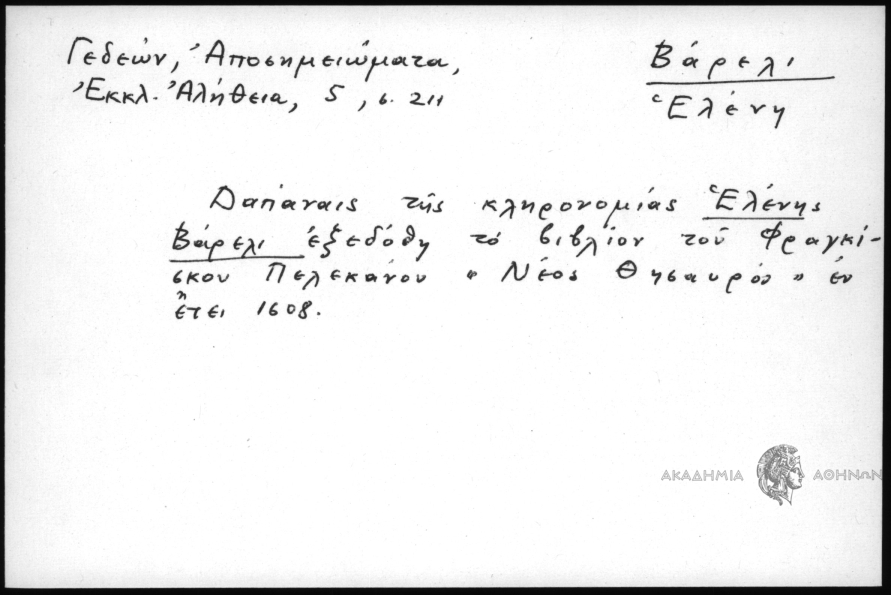 Γεδεών, Ἀποσημειώματα,
Ἐκκλ. Ἀλήθεια, 5, σ. 211
Βάρελι
Ἑλένη
Δαπάναις τῆς κληρονομίας Ἑλένης
Βάρελι ἐξεδόθη τό βιβλίον τοῦ Φραγκί-
σκου Πελεκάνου "Νέος Θησαυρός" ἐν
ἔτει 1608.
ΑΚΑΔΗΜΙΑ ΑΘΗΝΩΝ